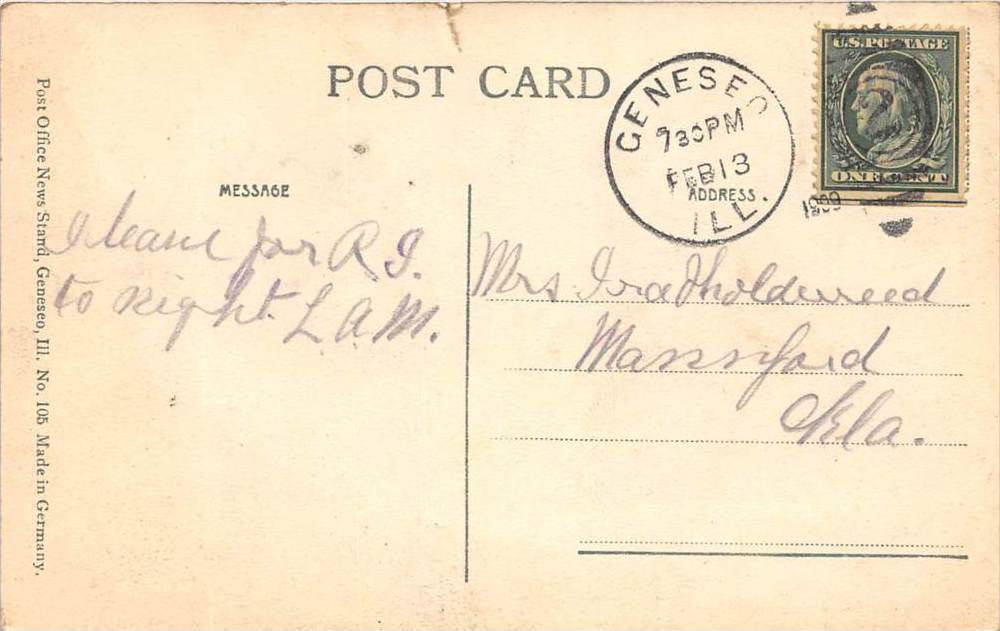 POST CARD
GENESEO
730PM
FEB 13
1909
ILL.
U.S. POSTAGE
ONE CENT
MESSAGE
ADDRESS
I leave for R I.
to night. L A M.
Mrs Ira
Mannford
Okla.
Post Office News Stand, Geneseo, Ill. No. 105 Made in Germany.